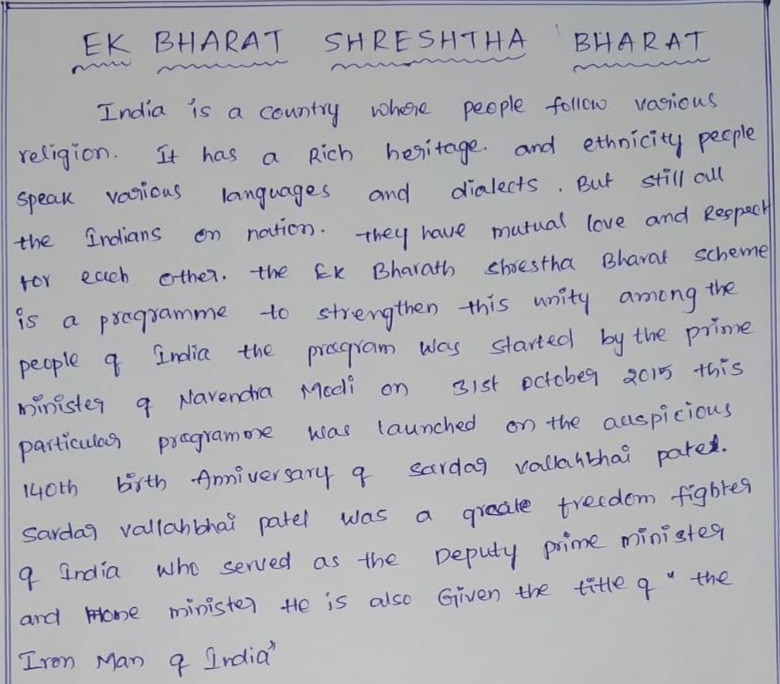 EK BHARAT SHRESHTHA BHARAT
India is a country where people follow various
religion. It has a Rich heritage. and ethnicity people
speak various languages and dialects. But still all
the Indians on nation. they have mutual love and Respect
for each other. the Ek Bharath shrestha Bharat scheme
is a programme to strengthen this unity among the
people of India the program was started by the prime
minister of Narendra Modi on 31st october 2015 this
particular programme was launched on the auspicious
140th birth Anniversary of sardar vallahbhai patel.
Sardar vallahbhai patel was a greate freedom fighter
of India who served as the Deputy prime minister
and Home minister He is also Given the title of "the
Iron Man of India"